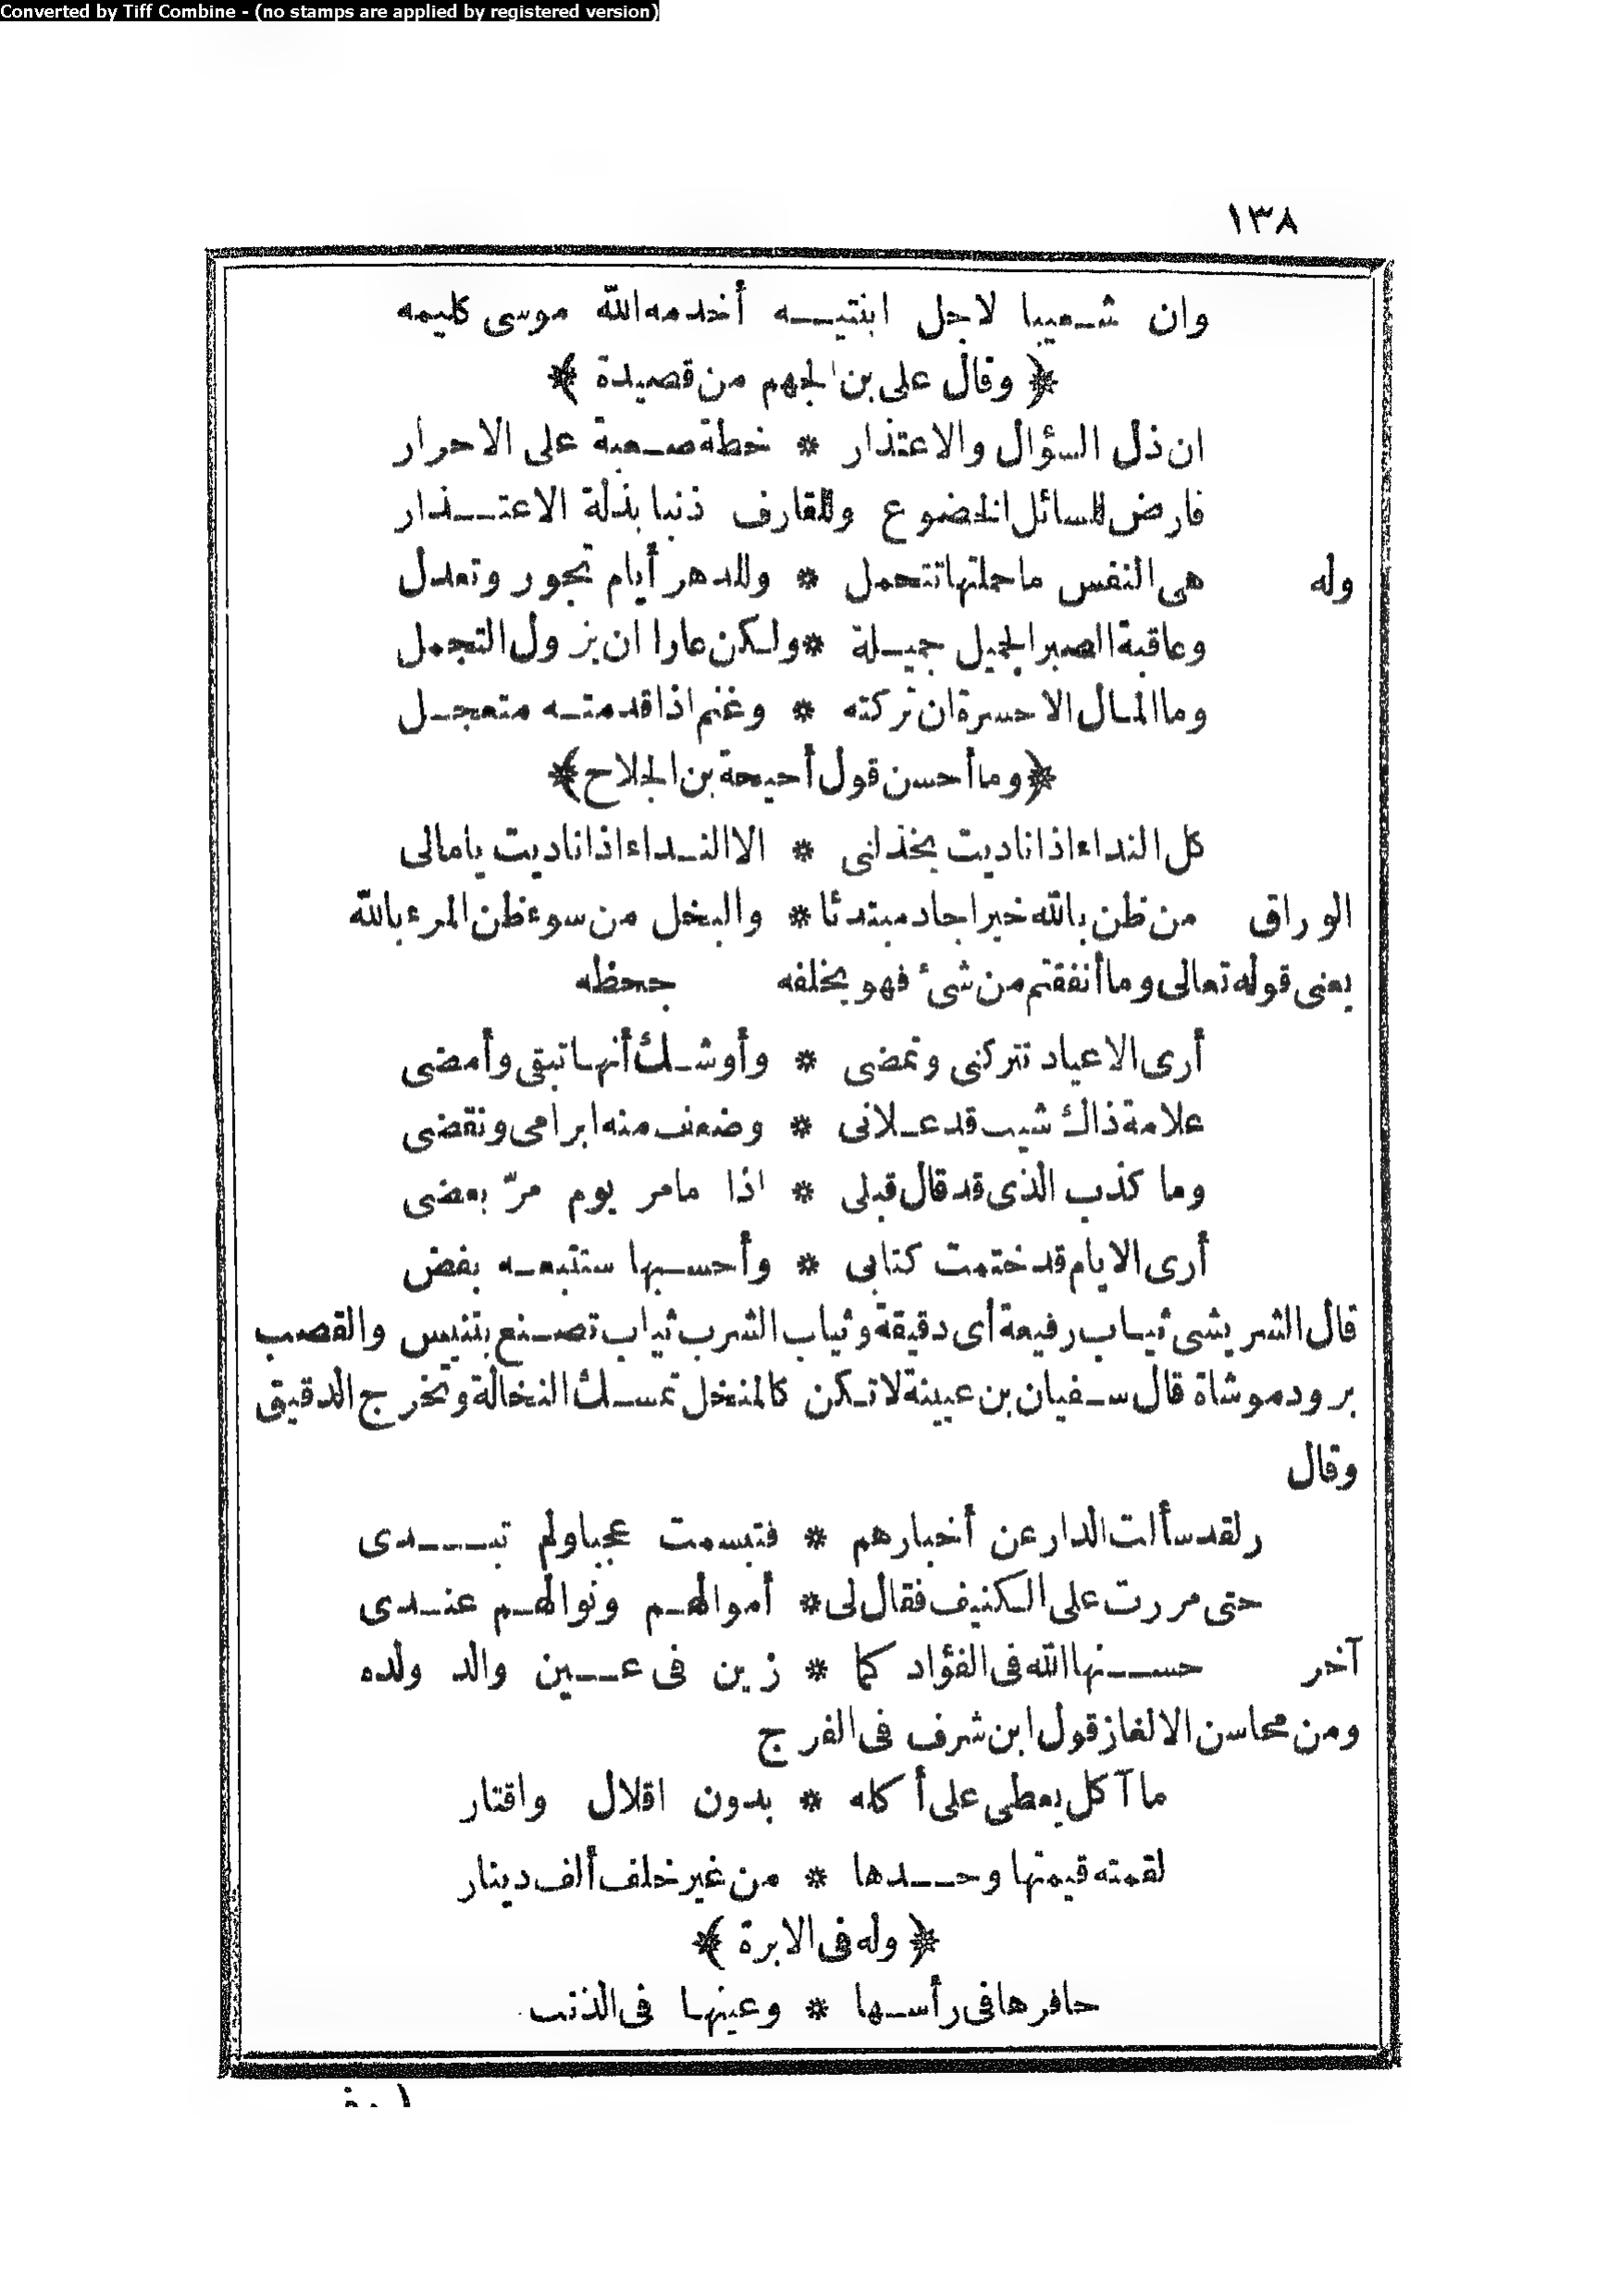 Converted by Tiff Combine - (no stamps are applied by registered version)
١٣٨
وان شعيبا لاجل ابنتيه أخدمه الله موسى كليمه
﴿ وقال على بن الجهم من قصيدة ﴾
ان ذل السؤال والاعتذار * خطة صعبة على الاحرار
فارض للسائل الخضوع وللقارف ذنبا بذلة الاعتذار
وله هى النفس ما حملتها تتحمل * وللدهر أيام تجور وتعدل
وعاقبة الصبر الجميل جميلة * ولكن عارا ان يزول التجمل
وما المال الا حسرة ان تركته * وغنم اذا قدمته متعجل
﴿وما أحسن قول أحيحة بن الجلاح﴾
كل النداء اذا ناديت يخذلنى * الا النداء اذا ناديت يا مالى
الوراق من ظن بالله خيرا جاد مبتدئا * والبخل من سوء ظن المرء بالله
يعنى قوله تعالى وما أنفقتم من شئ فهو يخلفه جحظه
أرى الاعياد تتركنى وتمضى * وأوشك أنها تبقى وأمضى
علامة ذاك شيب قد علانى * وضعف منه ابرامى ونقضى
وما كذب الذى قد قال قبلى * اذا مامر يوم مرّ بعضى
أرى الايام قد ختمت كتابى * وأحسبها ستتبعه بفض
قال الشريشى ثياب رفيعة أى دقيقة وثياب الشرب ثياب تصنع بتنيس والقصب
برود موشاة قال سفيان بن عيينة لا تكن كالمنخل تمسك النخالة وتخرج الدقيق
وقال
ولقد سألت الدار عن أخبارهم * فتبسمت عجبا ولم تبدى
حتى مررت على الكنيف فقال لى * أموالهم ونوالهم عندى
آخر حسنها الله فى الفؤاد كما * زين فى عين والد ولده
ومن محاسن الالغاز قول ابن شرف فى الفرج
ما آكل يعطى على أكله * بدون اقلال واقتار
لقمته قيمتها وحدها * من غير خلف ألف دينار
﴿ وله فى الابرة ﴾
حافرها فى رأسها * وعينها فى الذنب